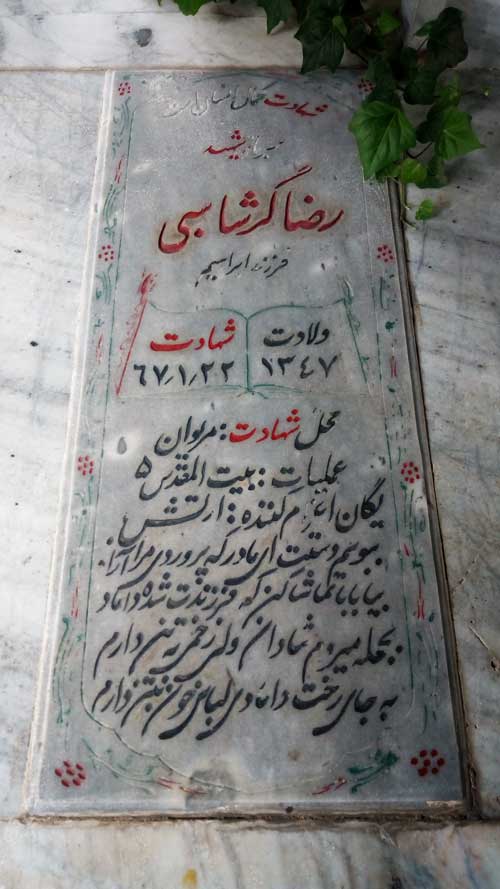 شهادت کمال انسان است
شهید
رضا گرشاسبی
فرزند ابراهیم
ولادت
۱۳٤۷
شهادت
٦۷٫۱٫۲۲
محل شهادت: مریوان
عملیات: بیت المقدس ۵
یگان اعزام کننده: ارتش
ببوسم دستت ای مادر که پروردی مرا آزاد
بیا بابا تماشا کن که فرزندت شده داماد
بحجله میروم شادان ولی زخمی به تن دارم
به جای رخت دامادی لباس خون بتن دارم